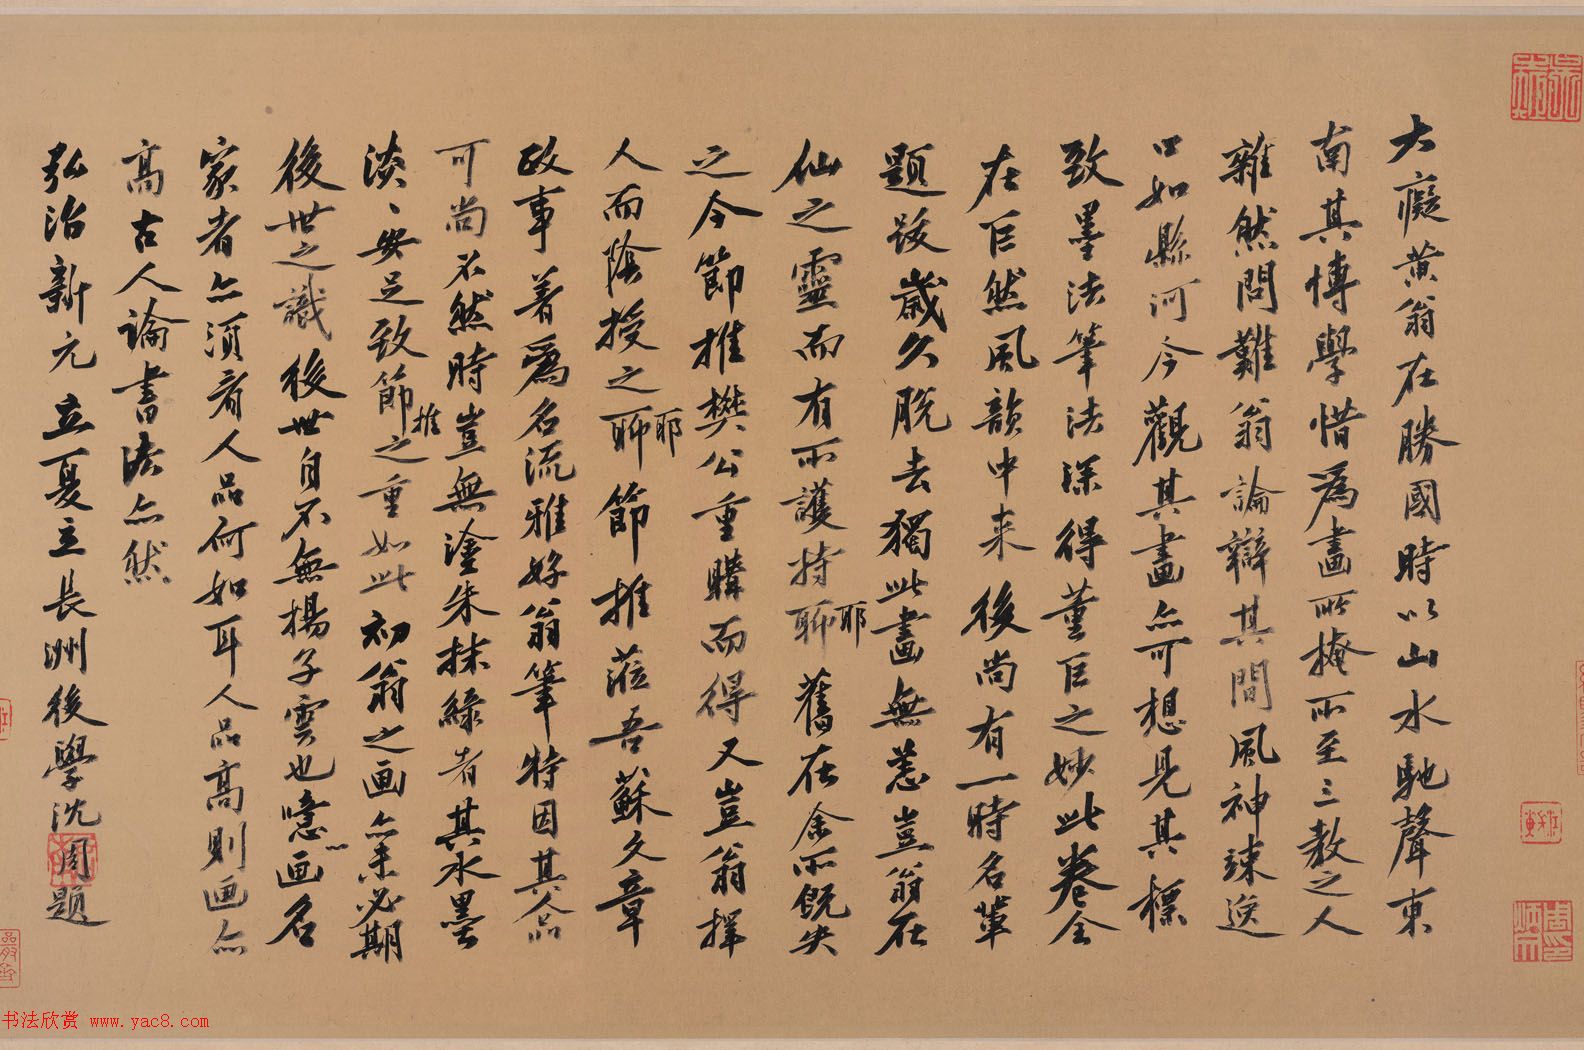 大癡黄翁在勝國時以山水馳聲東
南其博學惜為畫所掩所至三教之人
雜然問難翁論辯其間風神竦逸
口如縣河今觀其畫亦可想見其標
致墨法筆法深得董巨之妙此卷全
在巨然風韻中来後尚有一時名軰
題跋歲久脱去獨此畫無恙豈翁在
仙之靈而有所護持聊耶舊在余所既失
之今節推樊公重購而得又豈翁擇
人而陰授之聊耶節推蒞吾蘇文章
政事著為名流雅好翁筆特因其人品
可尚不然時豈無塗朱抹緑者其水墨
淡、安足致節推之重如此初翁之画亦未必期
後世之識後世自不無揚子雲也噫画名
家者亦須看人品何如耳人品高則画亦
高古人論書法亦然
弘治新元立夏立長洲後學沈周題
书法欣赏 www.yac8.com